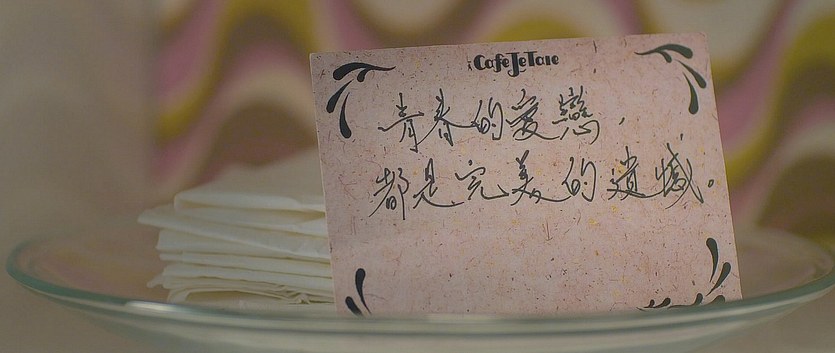 CafeJeTaie
青春的愛戀，
都是完美的遺憾。